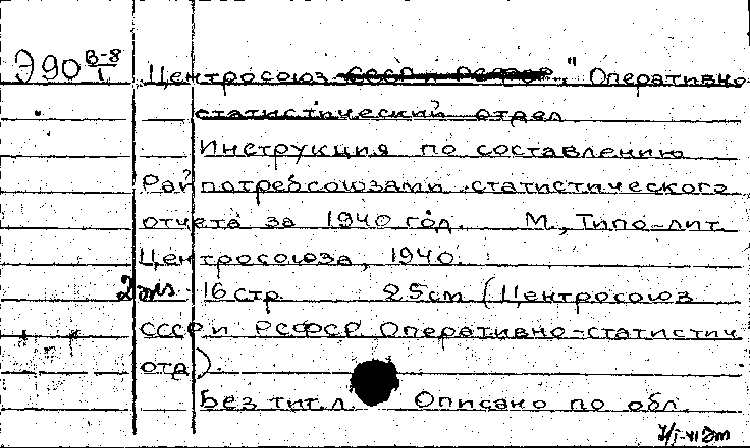 Э90 В-8/1 Центросоюз СССР и РСФСР, "Оперативно
статистический отдел
Инструкция по составлению
Райпотребсоюзами статистического
отчета за 1940 год. М., Типо-лит.
Центросоюза, 1940.
2 экз. 16 стр. 25 см (Центросоюз
СССР и РСФСР Оперативно-статистич
отд.)
Без тит. л. Описано по обл.